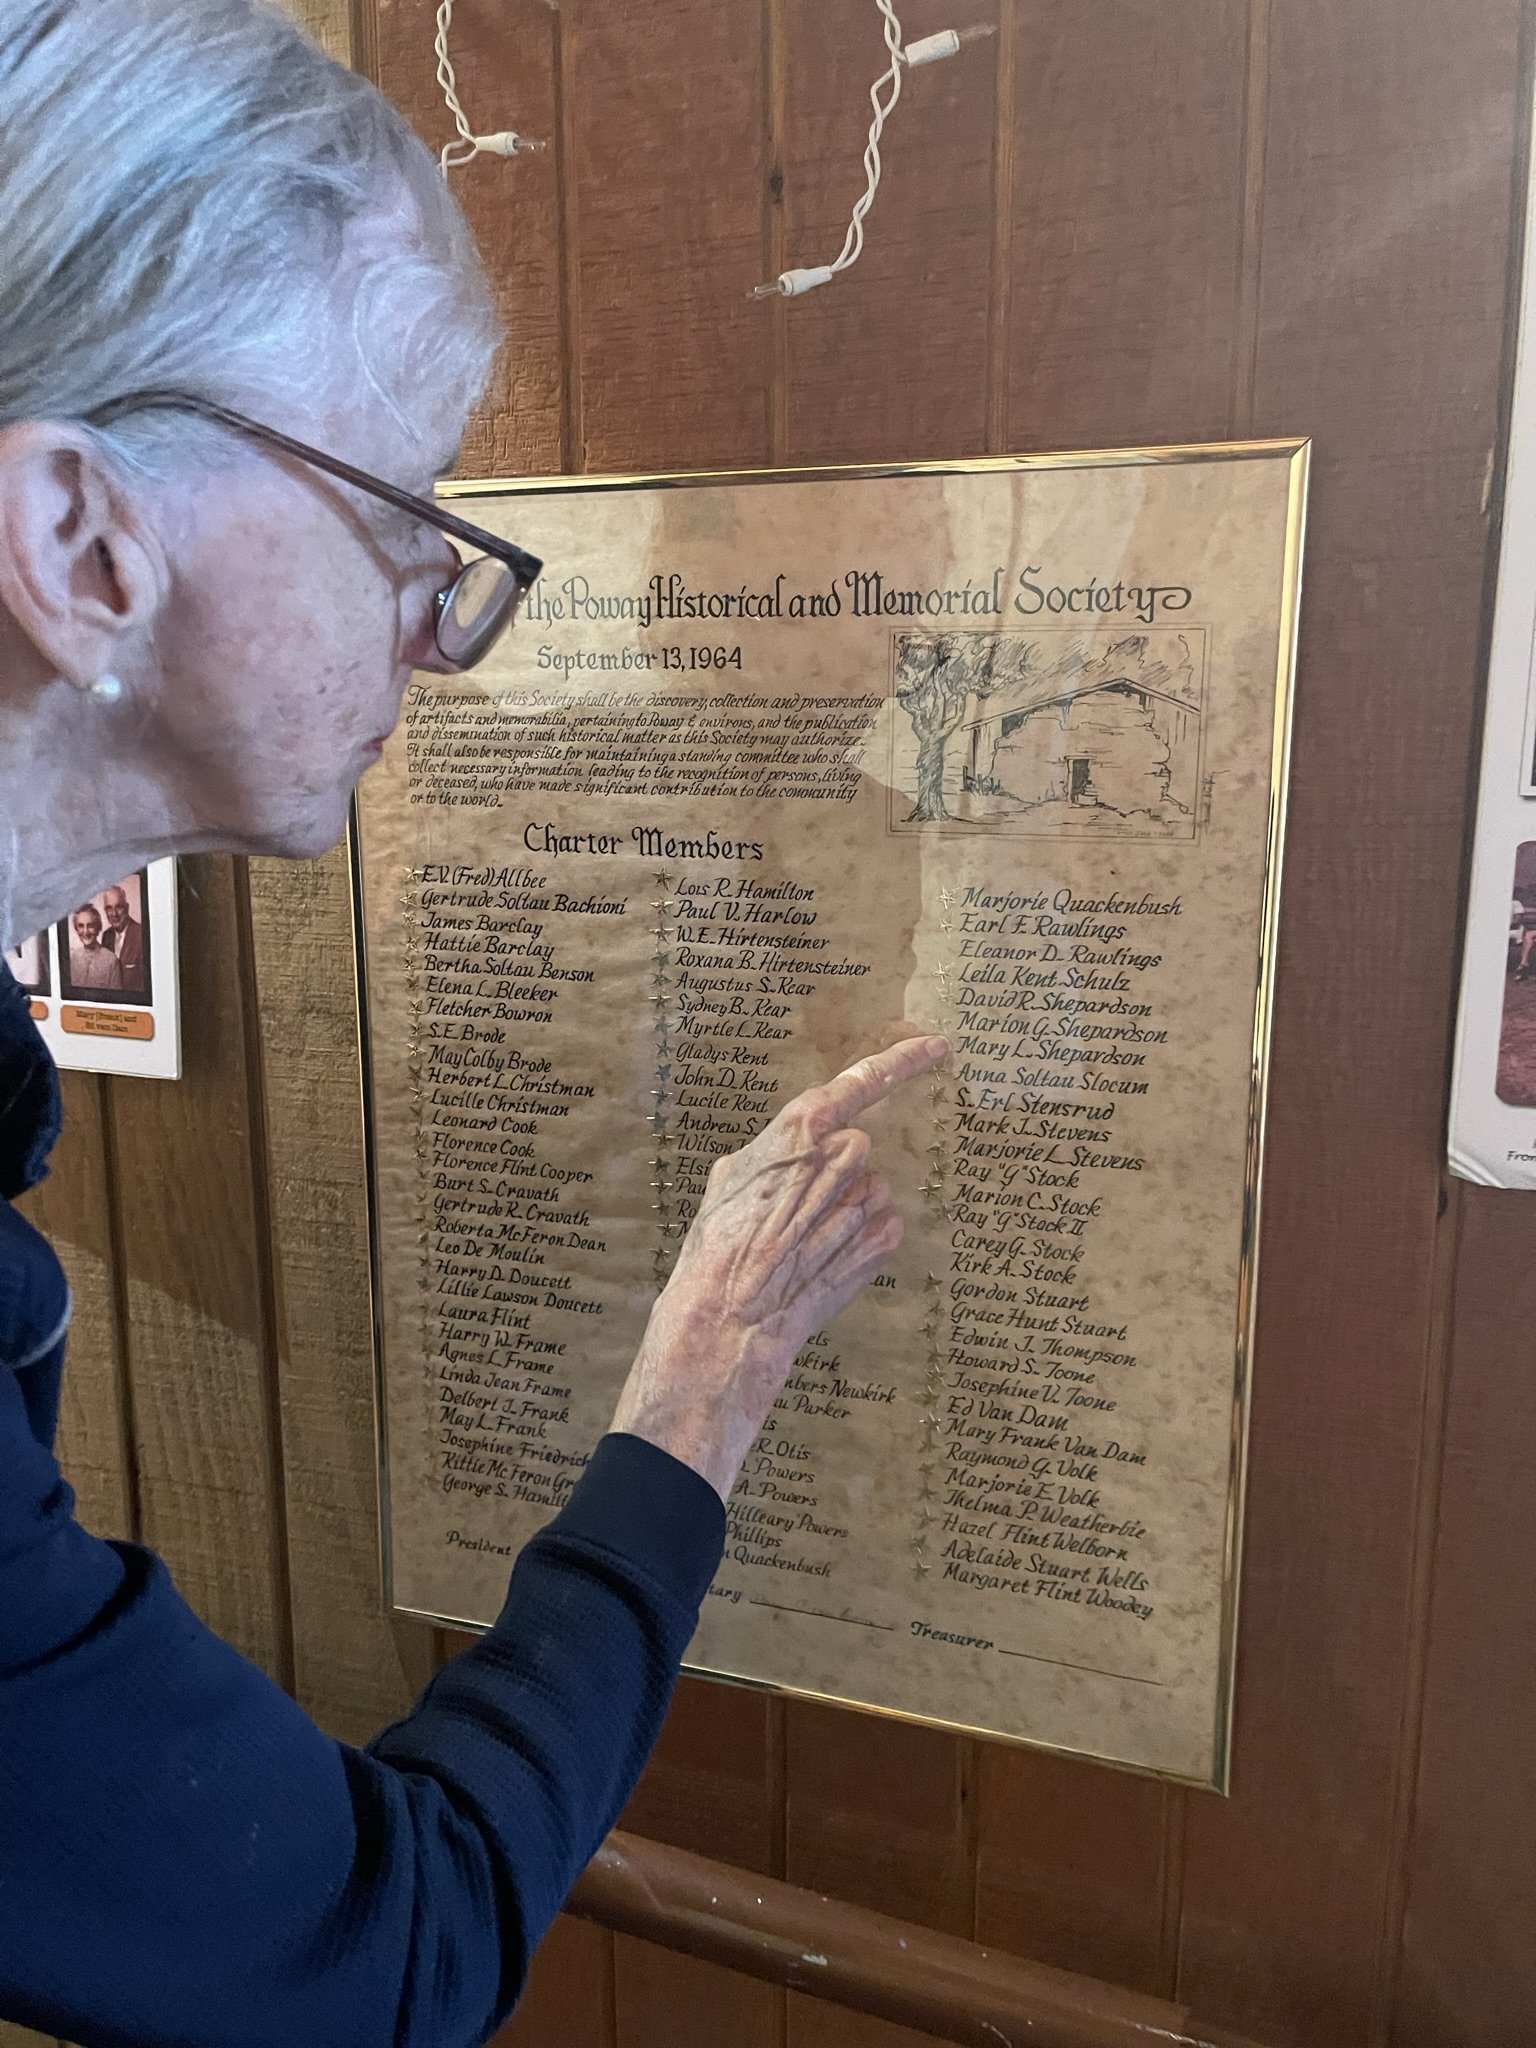 the Poway Historical and Memorial Society
September 13, 1964
The purpose of this Society shall be the discovery, collection and preservation
of artifacts and memorabilia, pertaining to Poway & environs, and the publication
and dissemination of such historical matter as this Society may authorize.
It shall also be responsible for maintaining a standing committee who shall
collect necessary information leading to the recognition of persons, living
or deceased, who have made significant contribution to the community
or to the world.
Charter Members
E.V. (Fred) Allbee
Gertrude Soltau Bachioni
James Barclay
Hattie Barclay
Bertha Soltau Benson
Elena L. Bleeker
Fletcher Bowron
S.E. Brode
May Colby Brode
Herbert L. Christman
Lucille Christman
Leonard Cook
Florence Cook
Florence Flint Cooper
Burt S. Cravath
Gertrude R. Cravath
Roberta McFeron Dean
Leo De Moulin
Harry D. Doucett
Lillie Lawson Doucett
Laura Flint
Harry W. Frame
Agnes L. Frame
Linda Jean Frame
Delbert J. Frank
May L. Frank
Josephine Friedrich
Kittie McFeron Gr
George S. Hamilt
Lois R. Hamilton
Paul V. Harlow
W.E. Hirtensteiner
Roxana B. Hirtensteiner
Augustus S. Kear
Sydney B. Kear
Myrtle L. Kear
Gladys Kent
John D. Kent
Lucile Kent
Andrew S.
Wilson
Elsi
Pau
Ro
an
els
wkirk
mbers Newkirk
au Parker
is
R. Otis
Powers
A. Powers
Hilleary Powers
Phillips
Quackenbush
Marjorie Quackenbush
Earl F. Rawlings
Eleanor D. Rawlings
Leila Kent Schulz
David R. Shepardson
Marion G. Shepardson
Mary L. Shepardson
Anna Soltau Slocum
S. Erl Stensrud
Mark J. Stevens
Marjorie L. Stevens
Ray "G" Stock
Marion C. Stock
Ray "G" Stock II
Carey G. Stock
Kirk A. Stock
Gordon Stuart
Grace Hunt Stuart
Edwin J. Thompson
Howard S. Toone
Josephine V. Toone
Ed Van Dam
Mary Frank Van Dam
Raymond G. Volk
Marjorie E. Volk
Thelma P. Weatherbie
Hazel Flint Welborn
Adelaide Stuart Wells
Margaret Flint Woodey
President
tary
Treasurer
Mary (Frank) and
Ed van Dam
From